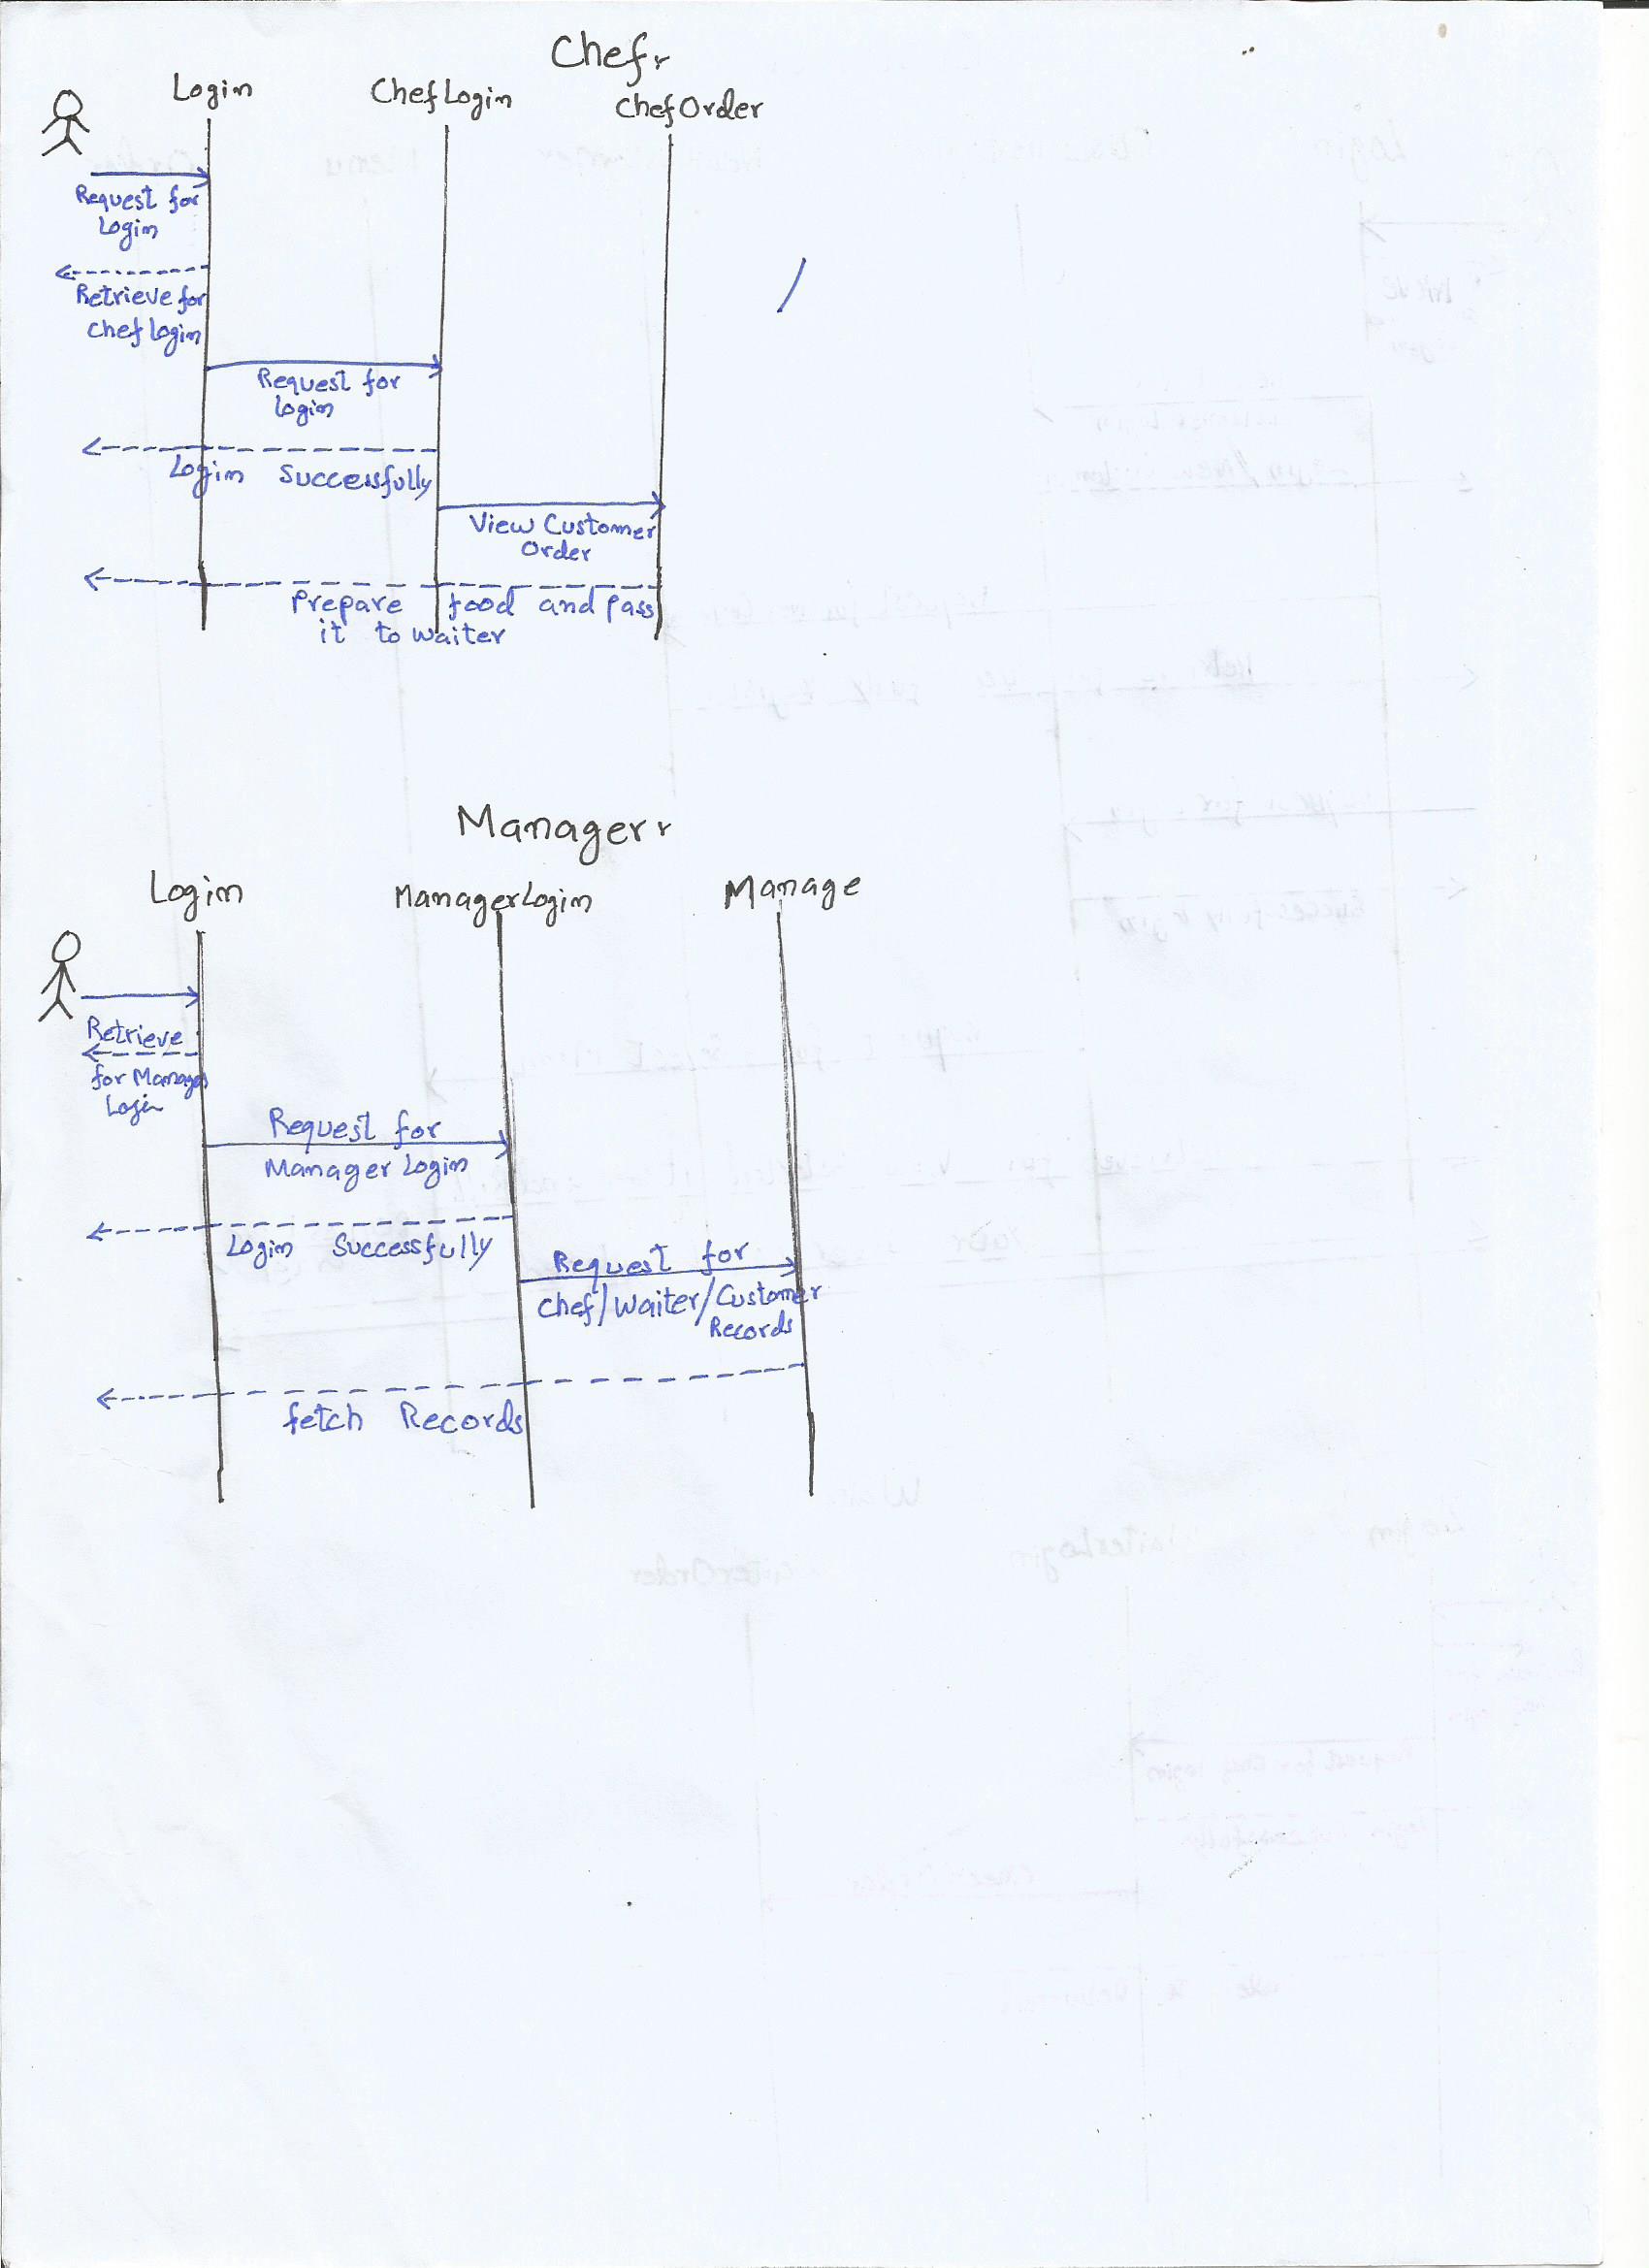 Chef
Login
ChefLogin
ChefOrder
Request for
Login
Retrieve for
Chef Login
Request for
login
Login Successfully
View Customer
Order
Prepare food and pass
it to waiter
Manager
Login
ManagerLogin
Manage
Retrieve
for Manager
Login
Request for
Manager Login
Login Successfully
Request for
Chef/Waiter/Customer
Records
fetch Records